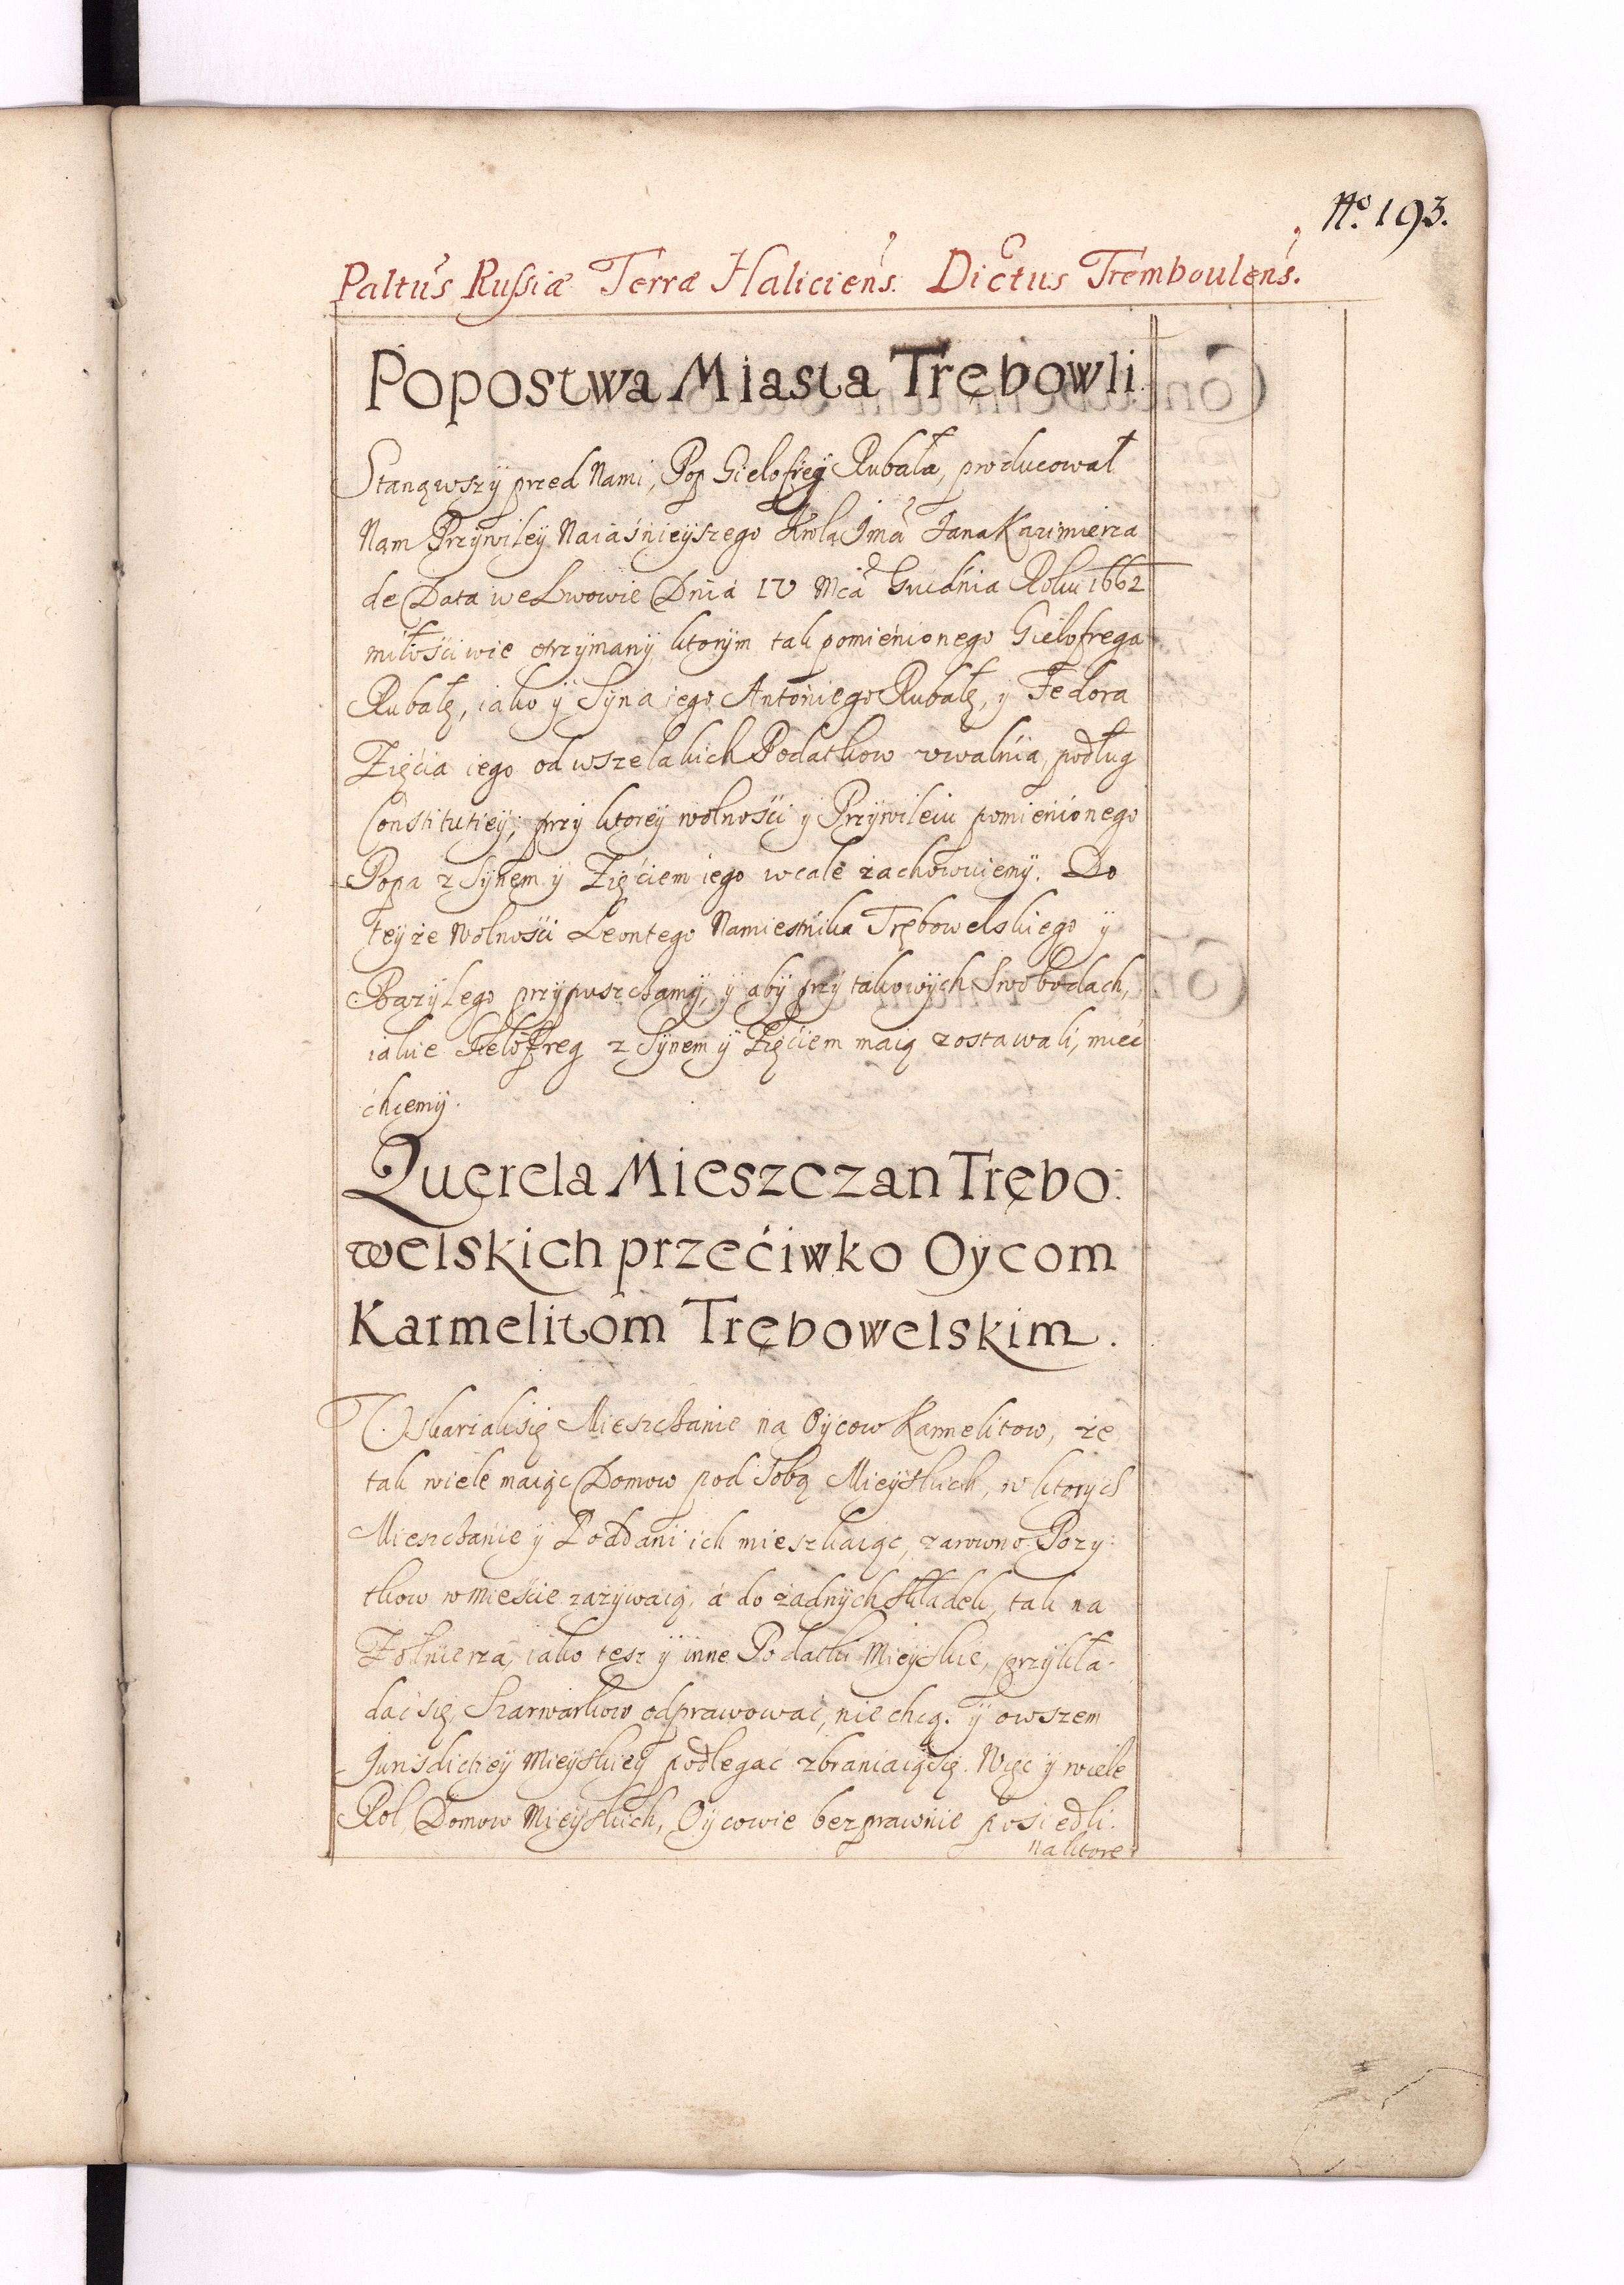 No. 193.
Paltus Russiæ Terræ Haliciens. Dictus Tremboulens.
Popostwa Miasta Trębowli
Stanąwszÿ przed Nami, Pop Gielofreÿ Rubała, producował
Nam Przÿwileÿ Naiaśnieÿszego Krola Jmā Jana Kazimierza
de Data we Lwowie Dnia IV Mcā Grudnia Roku 1662
miłościwie otrzÿmanÿ ktorÿm tak pomienionego Gielofrega
Rubałę, iako ÿ Sÿna iego Antoniego Rubałę, ÿ Fedora
Zięcia iego od wszelakich Podatkow vwalnia, podług
Constitutieÿ, przÿ ktoreÿ wolności ÿ Przÿwileiu pomienionego
Popa z Sÿnem ÿ Zięciem iego wcale zachowuiemÿ. Do
teÿże Wolności Leontego Namiestnika Trębowelskiego ÿ
Bazÿlego przÿpuszczamÿ, ÿ abÿ przÿ takowÿch Swobodach,
iakie Gielofreg z Sÿnem ÿ Zięciem maią zostawali, mieć
chcemÿ.
Querela Mieszczan Trębo:
welskich przećiwko Oÿcom
Karmelitom Trębowelskim.
Vskarzali się Mieszczanie na Oÿcow Karmelitow, że
tak wiele maiąc Domow pod sobą Mieÿskich, w ktorÿch
Mieszczanie ÿ Poddani ich mieszkaiąc, zarowno Pozÿ:
tkow w mieście zażÿwaią, á do żadnÿch składek, tak na
Zołnierza, iako tesz ÿ inne Podatki Mieÿskie, przÿkła-
dać się, Szarwarkow odprawować, nie chcą. ÿ owszem
Jurisdictieÿ Mieÿskieÿ podlegać zbraniaią się. Więc ÿ wiele
Rol, Domow Mieÿskich, Oÿcowie bezprawnie posiedli.
na ktore